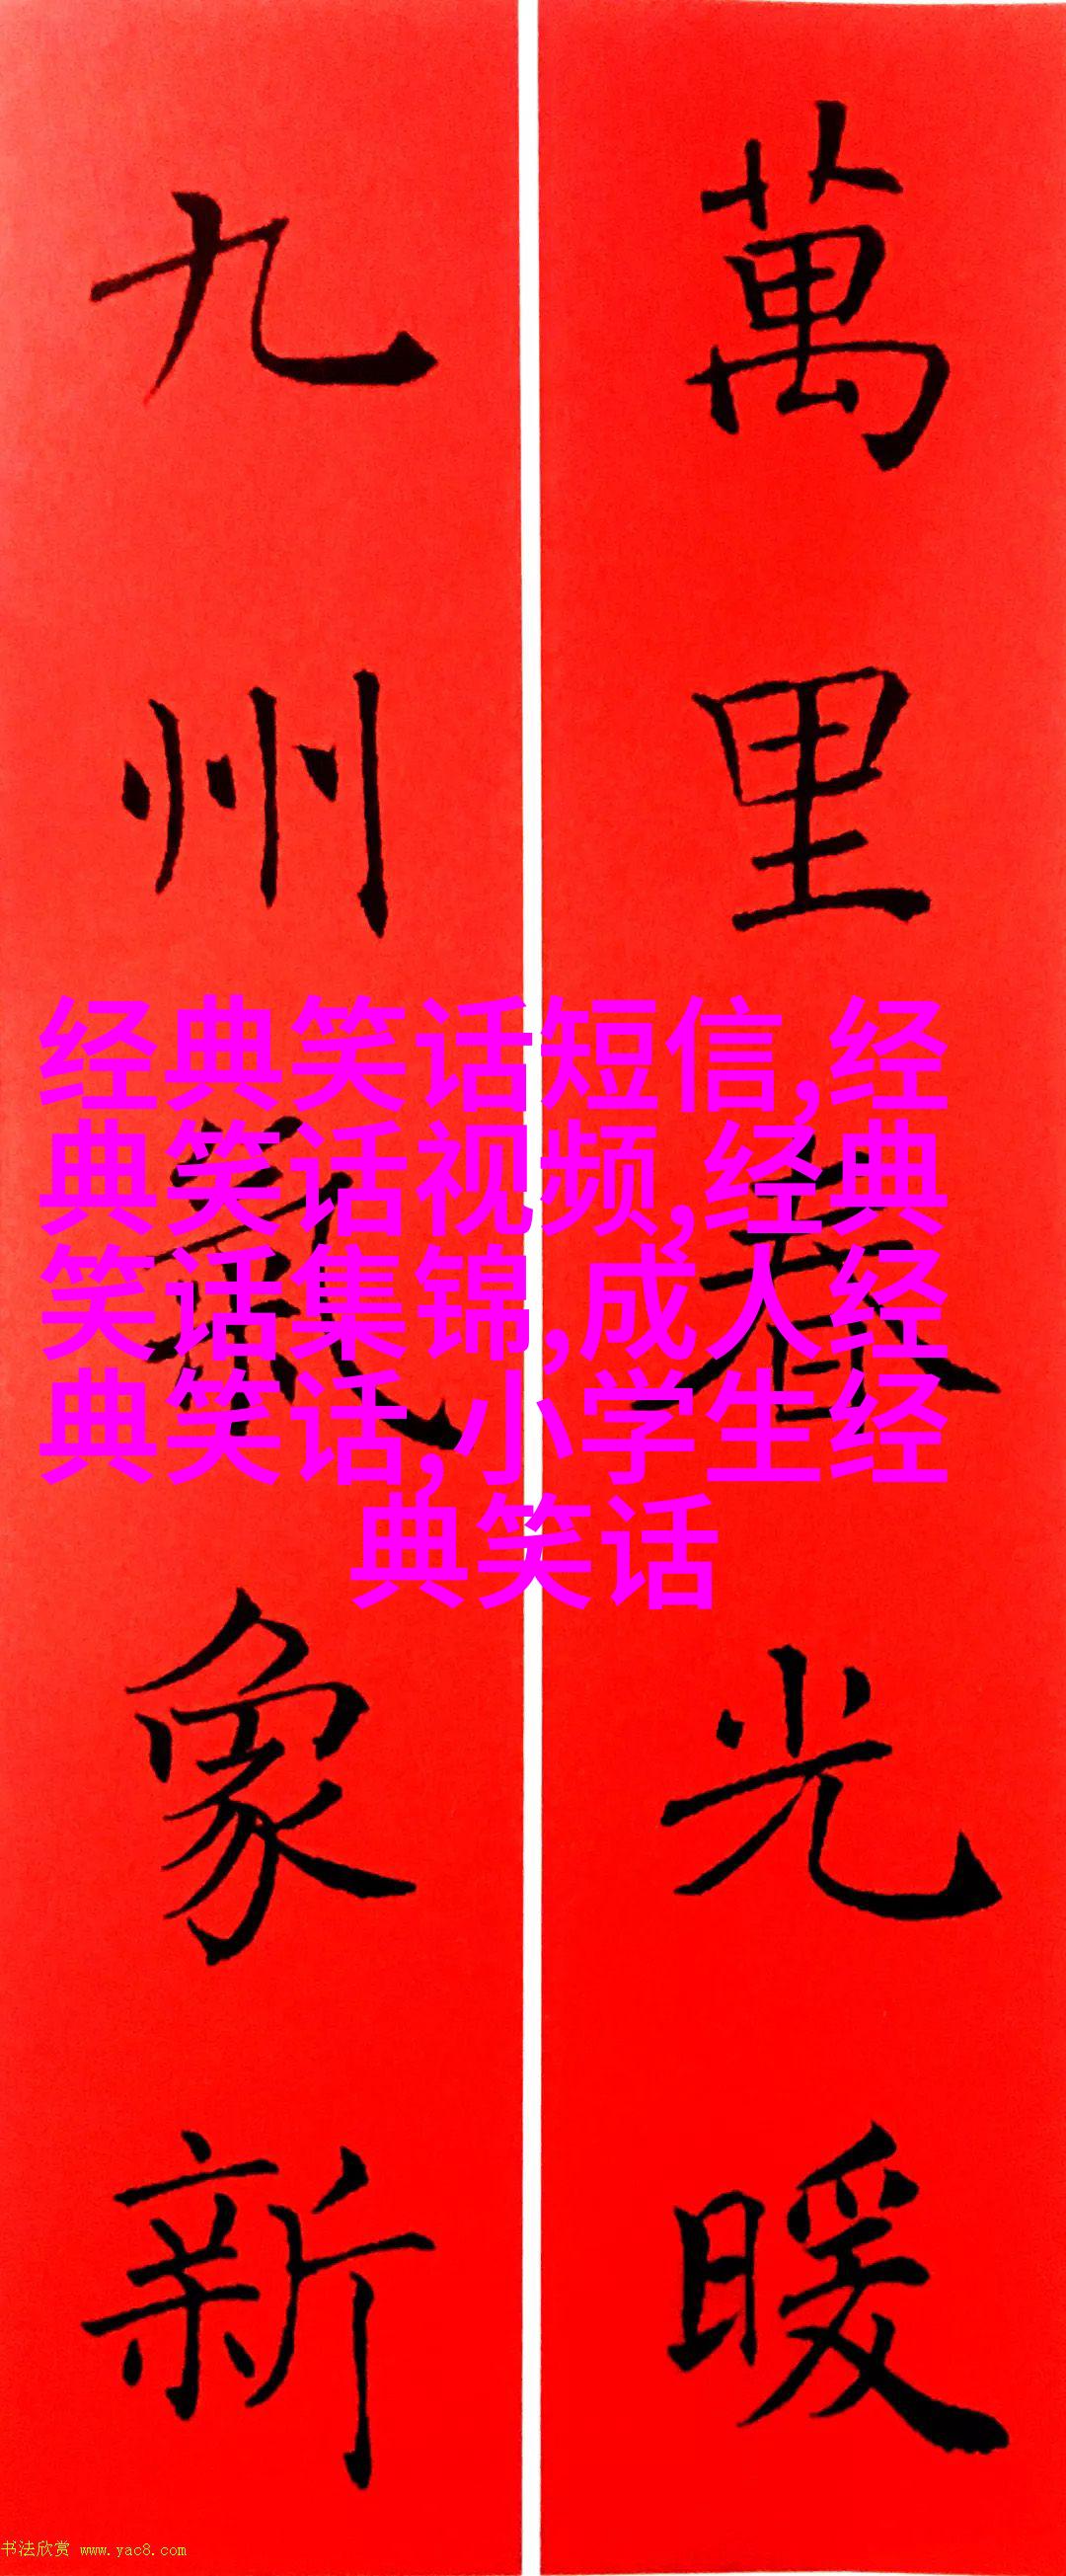 萬里春光暖
九州氣象新
经典笑话短信,经
典笑话视频,经典
笑话集锦,成人经
典笑话,小学生经
典笑话
书法欣赏 www.yac8.com